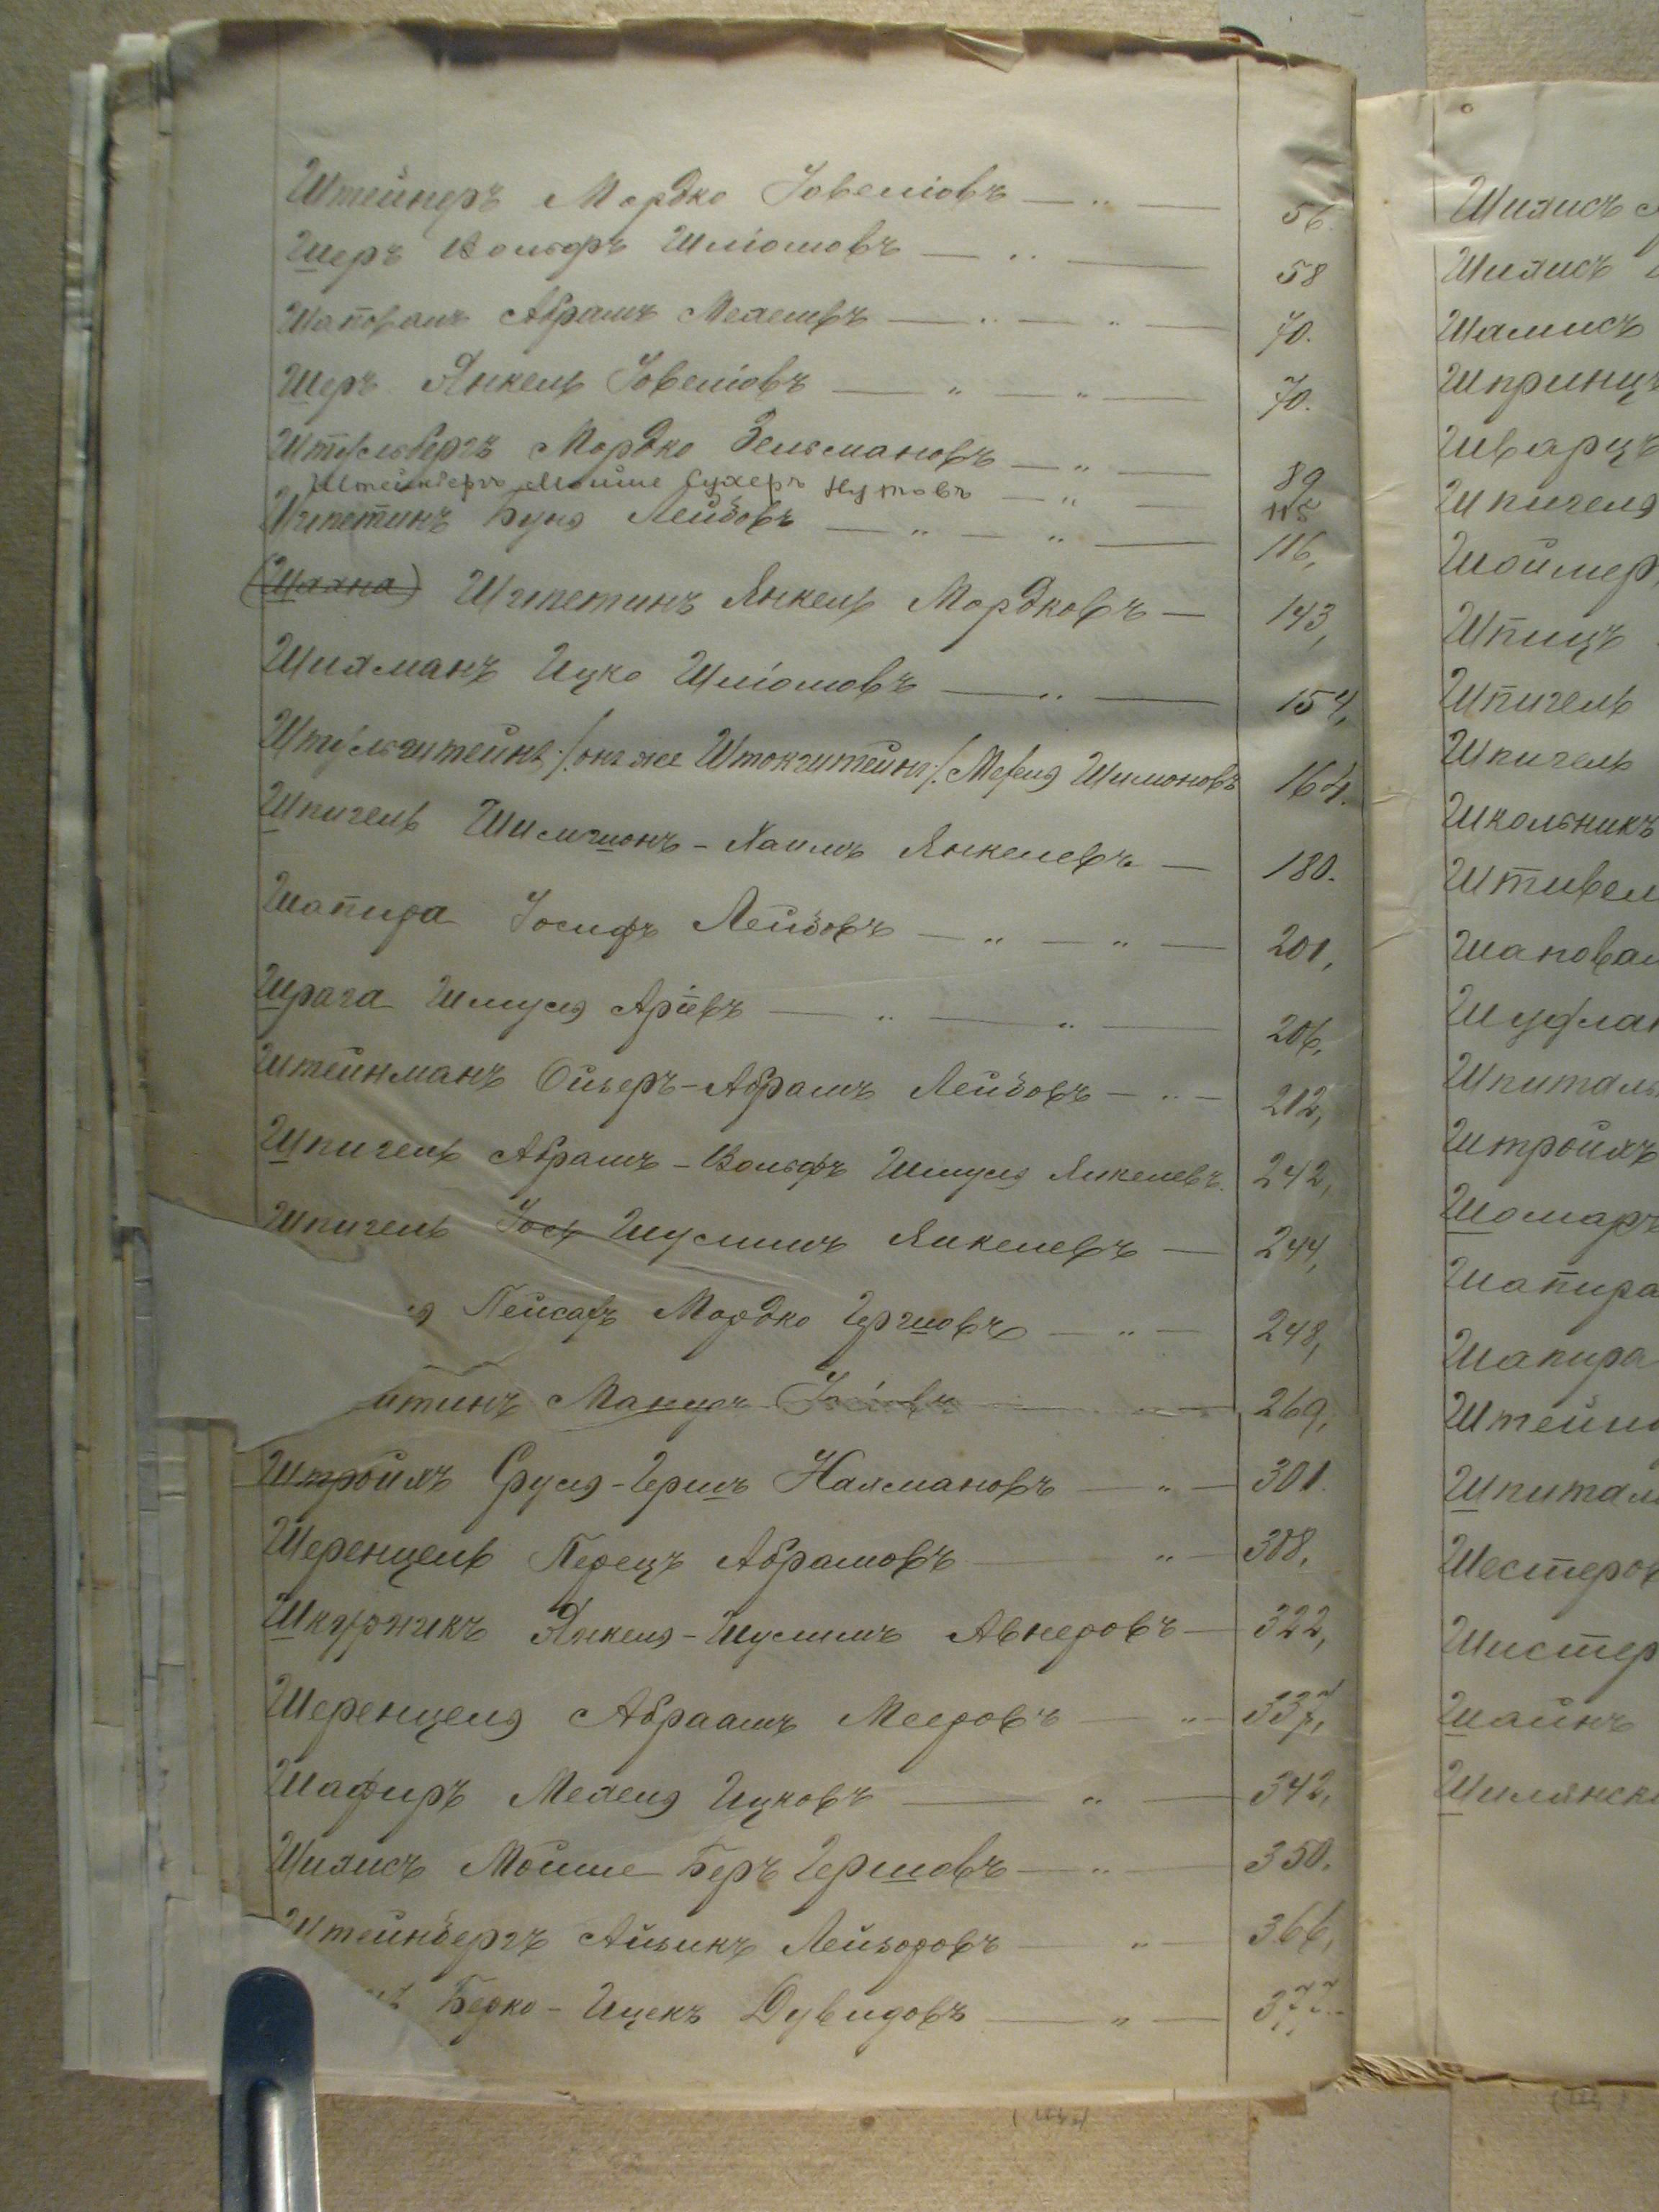 Штейнеръ Мордко Іовеліовъ — „ — 56.
Шеръ Вольфъ Шліомовъ — „ — 58
Шаповалъ Абрамъ Мелеховъ — „ — „ — 70.
Шеръ Янкель Іовеліовъ — „ — „ — 70.
Штульбергъ Мордко Зельмановъ — „ — 89
Штейнбергъ Мойше Сухеръ Нутовъ — „ — 115
Шпетинъ Буня Лейбовъ — „ — „ — 116,
(Шляна) Шпетинъ Янкель Мордковъ — 143,
Шихманъ Ицко Шліомовъ — „ — 154,
Штульштейнъ /:онъ же Штокштейнъ:/ Шимоновъ 164.
Шпигель Шимшонъ-Хаимъ Янкелевъ — 180.
Шапира Іосифъ Лейбовъ — „ — „ — 201,
Шрага Шмуля Аріевъ — „ — „ — 206,
Штейнманъ Ойзеръ-Абрамъ Лейбовъ — „ — 212,
Шпигель Абрамъ-Вольфъ Шмуля Янкелевъ. 242,
Шпигель Іос Шулимъ Янкелевъ — 244,
Пейсахъ Мордко Гершовъ — „ — 248,
итинъ 269,
Штройхъ Сруля-Гершъ Нахмановъ — „ — 301.
Шеренцель Перецъ Абрамовъ — „ — 308,
Шкурникъ Янкеля-Шулимъ Авнеровъ — 322,
Шеренцеля Абраамъ Мееровъ — „ — 337,
Шафиръ Мелеля Ицковъ — „ — 342,
Шихисъ Мойше Беръ Гершовъ — „ — 350.
Штейнбергъ Айзикъ Лейзоровъ — „ — 366,
Берко-Ицекъ Дувидовъ — „ — 377
Шихисъ
Шихисъ
Шамисъ
Шпринцъ
Шварцъ
Шпигеля
Шоймер
Шпицъ
Шпигель
Шпигель
Школьникъ
Штивел
Шаповал
Шуфла
Шпиталь
Штройхъ
Шомаръ
Шапира
Шапира
Штейн
Шпитал
Шестеро
Шистер
Шайнъ
Шилянск